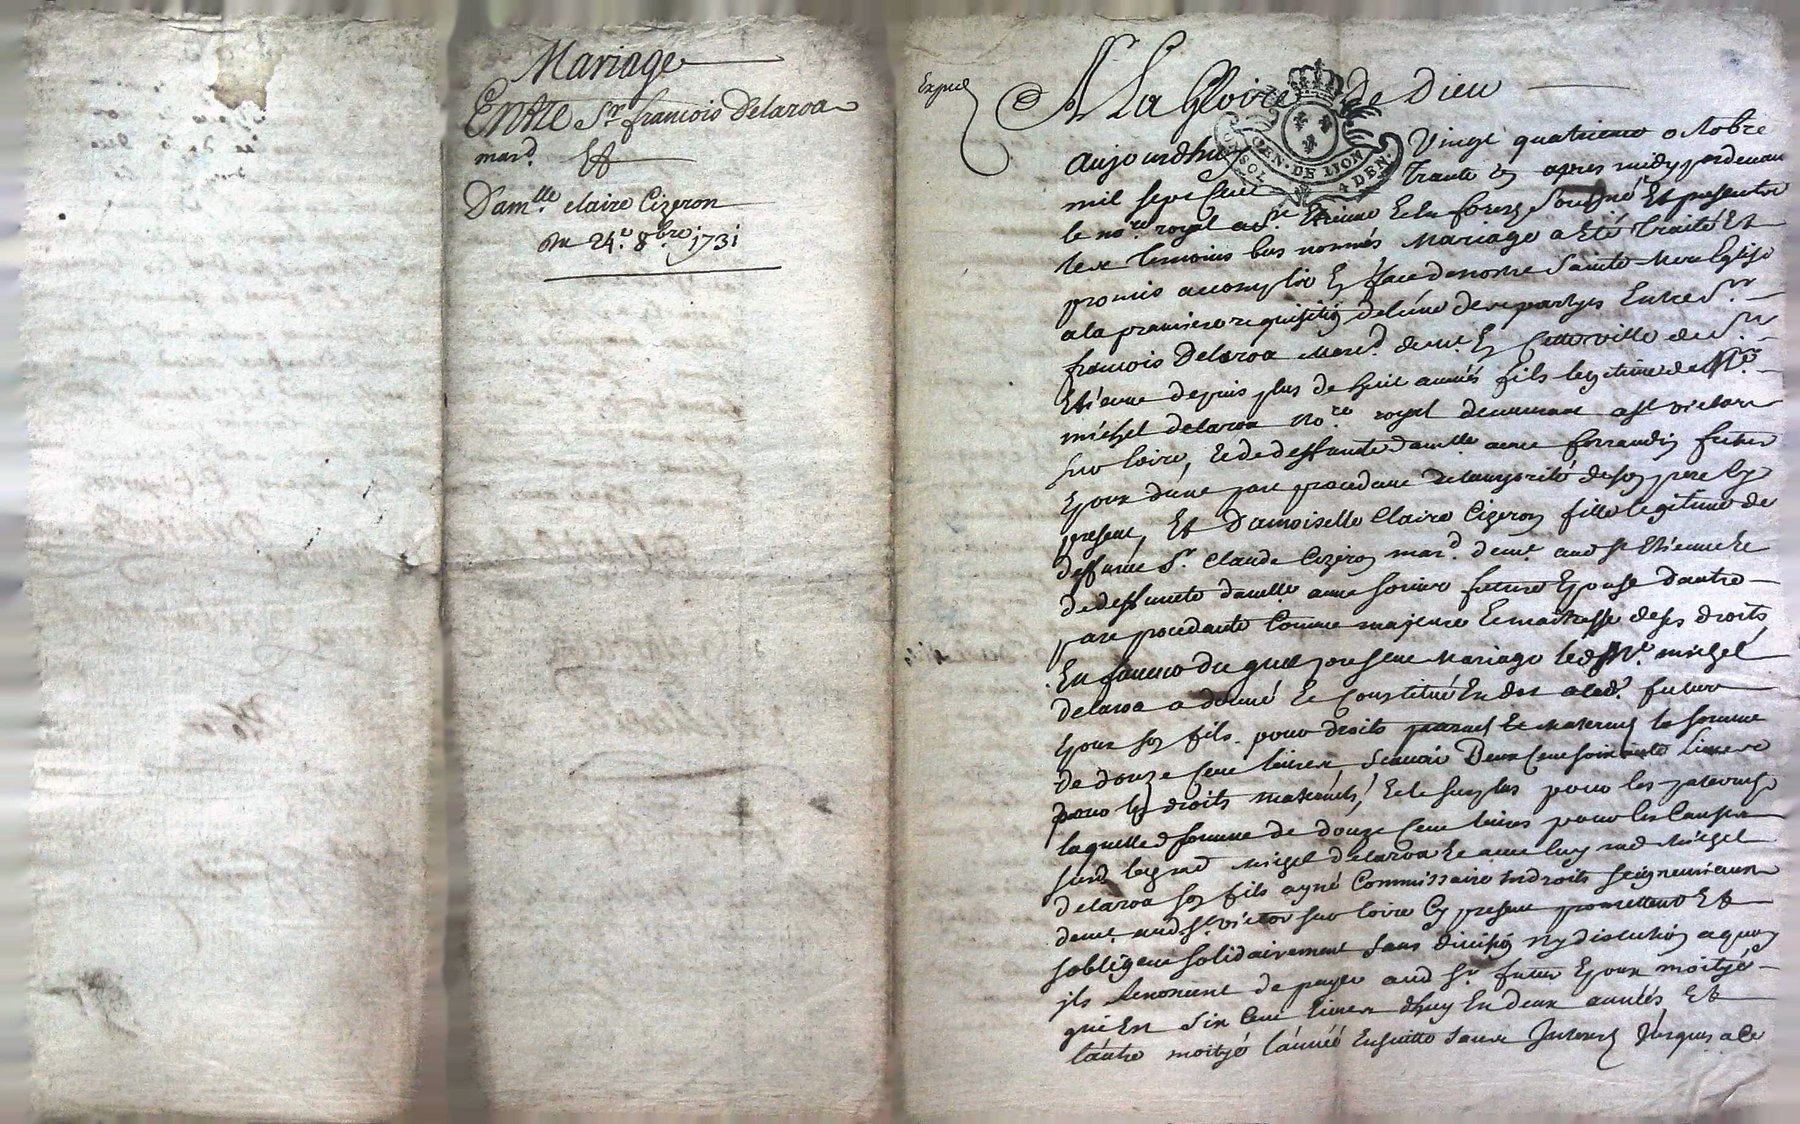 Mariage
Entre Sr. francois Delaroa
mard. Et
Dam.lle claire Cizeron
du 24.e 8bre 1731
Exped
A La Gloire de Dieu
GEN. DE LYON
SOL 4 DEN.
aujourdhuy Vingt quatrieme octobre
mil sept Cent Trante Un apres midy pardevant
le no.re royal a St. Etienne En forez Soussigné Et presentz
les temoins bas nommés Mariage a Eté Traité Et
promis accomplir En face de nostre Sainte Mere Eglise
a la premiere requisition de lune des partyes Entre Sr.
francois Delaroa Mard. demt. En Cette ville de St.
Etienne depuis plus de huit années fils legitime de Me.
michel delaroa No.re royal demeurant a St victor
sur loire, Et de deffunte damlle anne forrandin futur
Epoux d'une part procedant de lautorité de son pere Cy
present, Et Damoiselle Claire Cizeron fille legitime de
deffunt Sr. Claude Cizeron mard. demt. aud St Etienne Et
de deffuncte damlle anne future Epouse dautre
part procedante Comme majeure Et maitresse de ses droits
En faveur du quel present Mariage led Me. michel
delaroa a donné Et Constitué En dot aud. futur
Epoux son fils pour droits paternels Et Maternels la somme
de douze Cent livres Scavoir Deux Cent soixante livres
pour les droits Maternels, Et le surplus pour les paternels
laquelle somme de douze Cent livres
michel delaroa Et avec luy michel
delaroa son fils ayné Commissaire En droits seigneuriaux
demt. aud St. victor sur loire Cy present promettent Et
sobligent solidairement sans division ny discution a quoy
ils renoncent de payer aud Sr. futur Epoux moityé
qui Est Six Cent livres dhuy En deux années Et
lautre moityé lannée Ensuitte sans Interest Jusques a ce